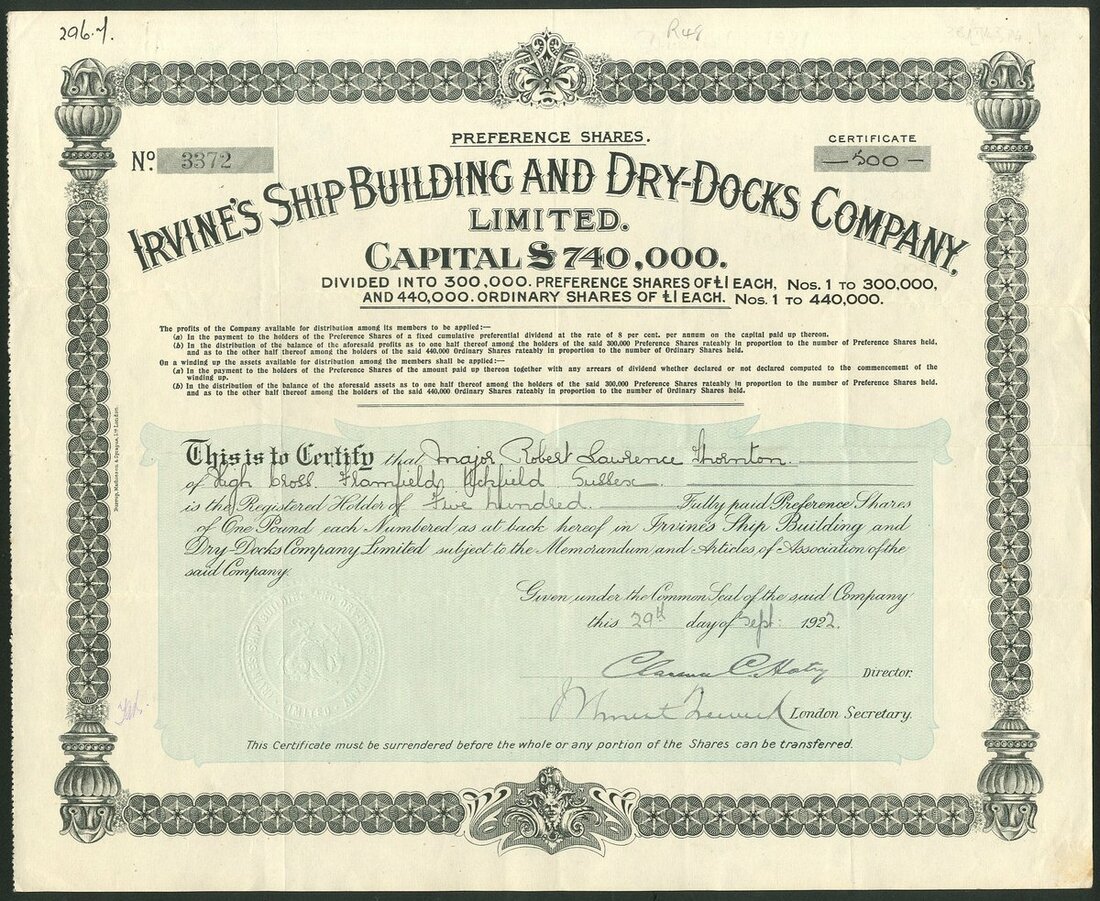 296.7.
R48
PREFERENCE SHARES.
CERTIFICATE
No. 3372
— 500 —
IRVINE'S SHIP BUILDING AND DRY-DOCKS COMPANY,
LIMITED.
CAPITAL £740,000.
DIVIDED INTO 300,000. PREFERENCE SHARES OF £1 EACH, Nos. 1 TO 300,000,
AND 440,000. ORDINARY SHARES OF £1 EACH. Nos. 1 TO 440,000.
The profits of the Company available for distribution among its members to be applied:—
(a) In the payment to the holders of the Preference Shares of a fixed cumulative preferential dividend at the rate of 8 per cent. per annum on the capital paid up thereon.
(b) In the distribution of the balance of the aforesaid profits as to one half among the holders of the said 300,000 Preference Shares rateably in proportion to the number of Preference Shares held,
and as to the other half thereof among the holders of the said 440,000 Ordinary Shares rateably in proportion to the number of Ordinary Shares held.
On a winding up the assets available for distribution among the members shall be applied:—
(a) In the payment to the holders of the Preference Shares of the amount paid up thereon together with any arrears of dividend whether declared or not declared computed to the commencement of the
winding up.
(b) In the distribution of the balance of the aforesaid assets as to one half thereof among the holders of the said 300,000 Preference Shares rateably in proportion to the number of Preference Shares held.
and as to the other half thereof among the holders of the said 440,000 Ordinary Shares rateably in proportion to the number of Ordinary Shares held.
This is to Certify that Major Robert Lawrence Thornton.
of High Cross. Framfield, Uckfield Sussex.
is the Registered Holder of Five hundred. Fully paid Preference Shares
of One Pound each Numbered as at back hereof in Irvine's Ship Building and
Dry-Docks Company Limited subject to the Memorandum and Articles of Association of the
said Company.
Given under the Common Seal of the said Company
this 29th day of Sept: 1922.
Clarence C. Hatry Director.
London Secretary.
This Certificate must be surrendered before the whole or any portion of the Shares can be transferred.